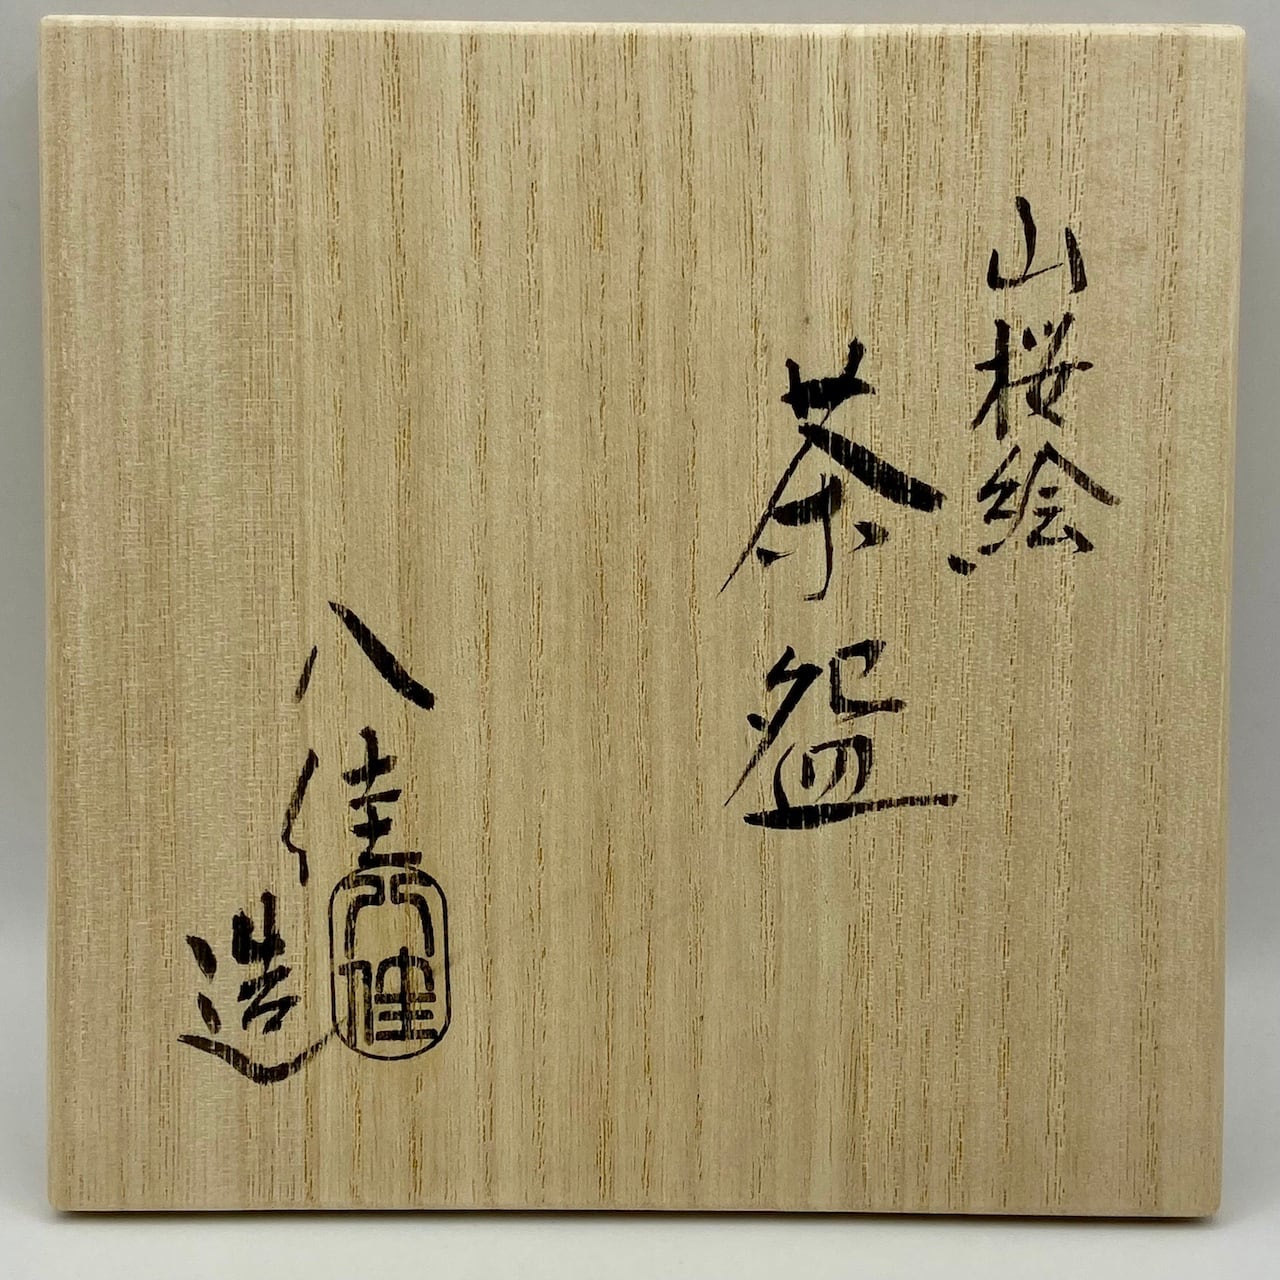 山桜絵
茶盌
八佳造
八佳